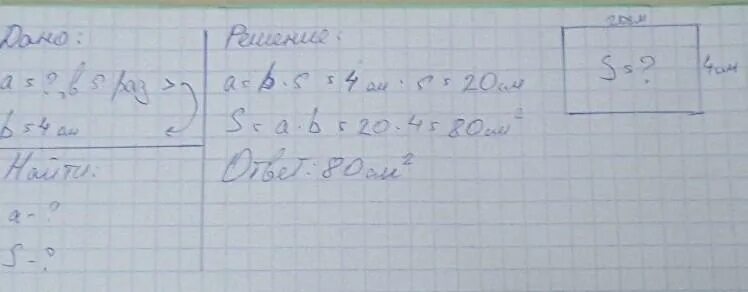 Дано:
a = ?, в 5 раз >
b = 4 см
Найти:
a - ?
S - ?
Решение:
a = b · 5 = 4 см · 5 = 20 см
S = a · b = 20 · 4 = 80 см²
Ответ: 80 см²
20 см
S = ?
4 см